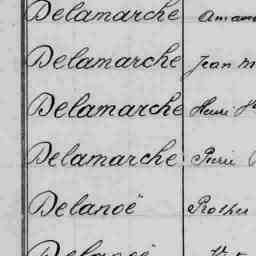 Delamarche
Delamarche Jean
Delamarche Henri
Delamarche Pierre
Delanoë Prosper
Delanoë